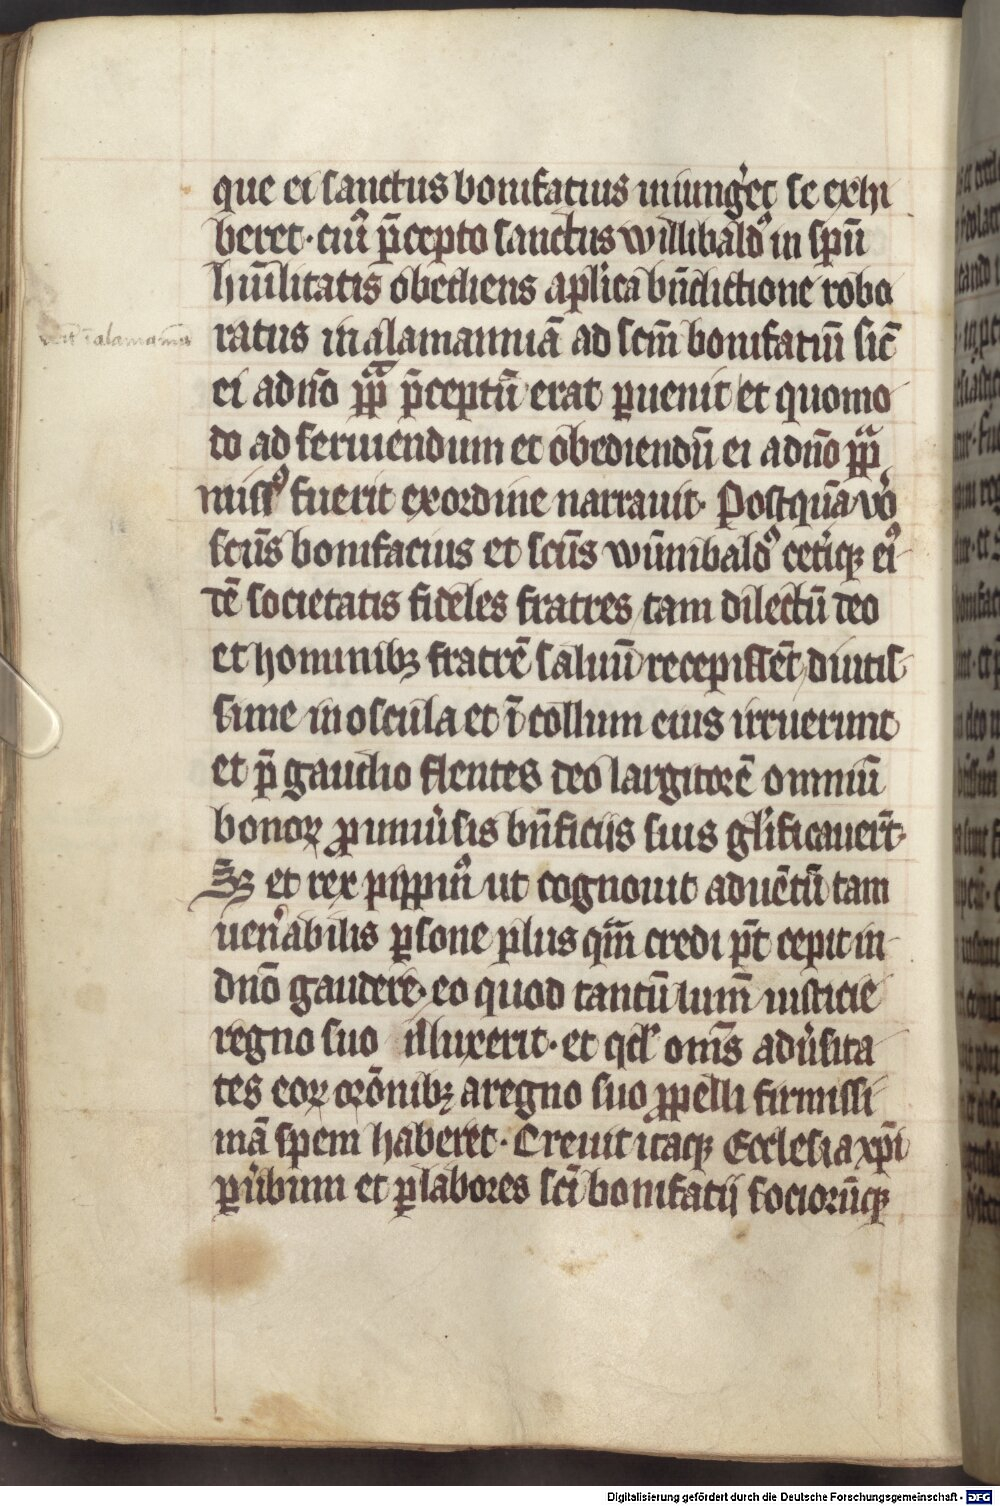 que ei sanctus bonifatius iniung̉et se exhi
beret · ciꝰ p̄cepto sanctus willibaldꝰ in spū
hūilitatis obediens aplica bn̄dictione robo
ratus in alamanniā ad scm̄ bonifatiū sic̄
ei adn̄o pp̄ p̄ceptū erat ꝑuenit et quomo
do ad seruiendum et obediendū ei adn̄o pp̄
missꝰ fuerit exordine narrauit · Postquā vo̊
scūs bonifacius et scūs wūnibaldꝰ cet̉iqꝫ eiꝰ
dē societatis fideles fratres tam dilectū deo
et hominibꝫ fratrē saluū recepissēt diutis
sime in oscula et ī collum eius irruerunt
et p̄ gaudio flentes deo largitorē omniū
bonoꝝ ꝓ uniu̓sis bn̄ficijs suis gl̓ificauer̄t
Sꝫ et rex pippinꝰ ut cognouit aduētū tam
uen̓abilis ꝑsone plus qm̄ credi pt̄ cepit in
dn̄o gaudere · eo quod tantū lum̄ iusticie
regno suo illuxerit · et qd̓ oms̄ adu̓sita
tes eoꝝ orōnibꝫ a regno suo ꝓpelli firmissi
mā spem haberet · Creuit itaqꝫ Ecclesia xp̄i
ꝑ u̓bum et ꝑ labores scī bonifatij sociorūqꝫ
ī alamannia
Digitalisierung gefördert durch die Deutsche Forschungsgemeinschaft - DFG